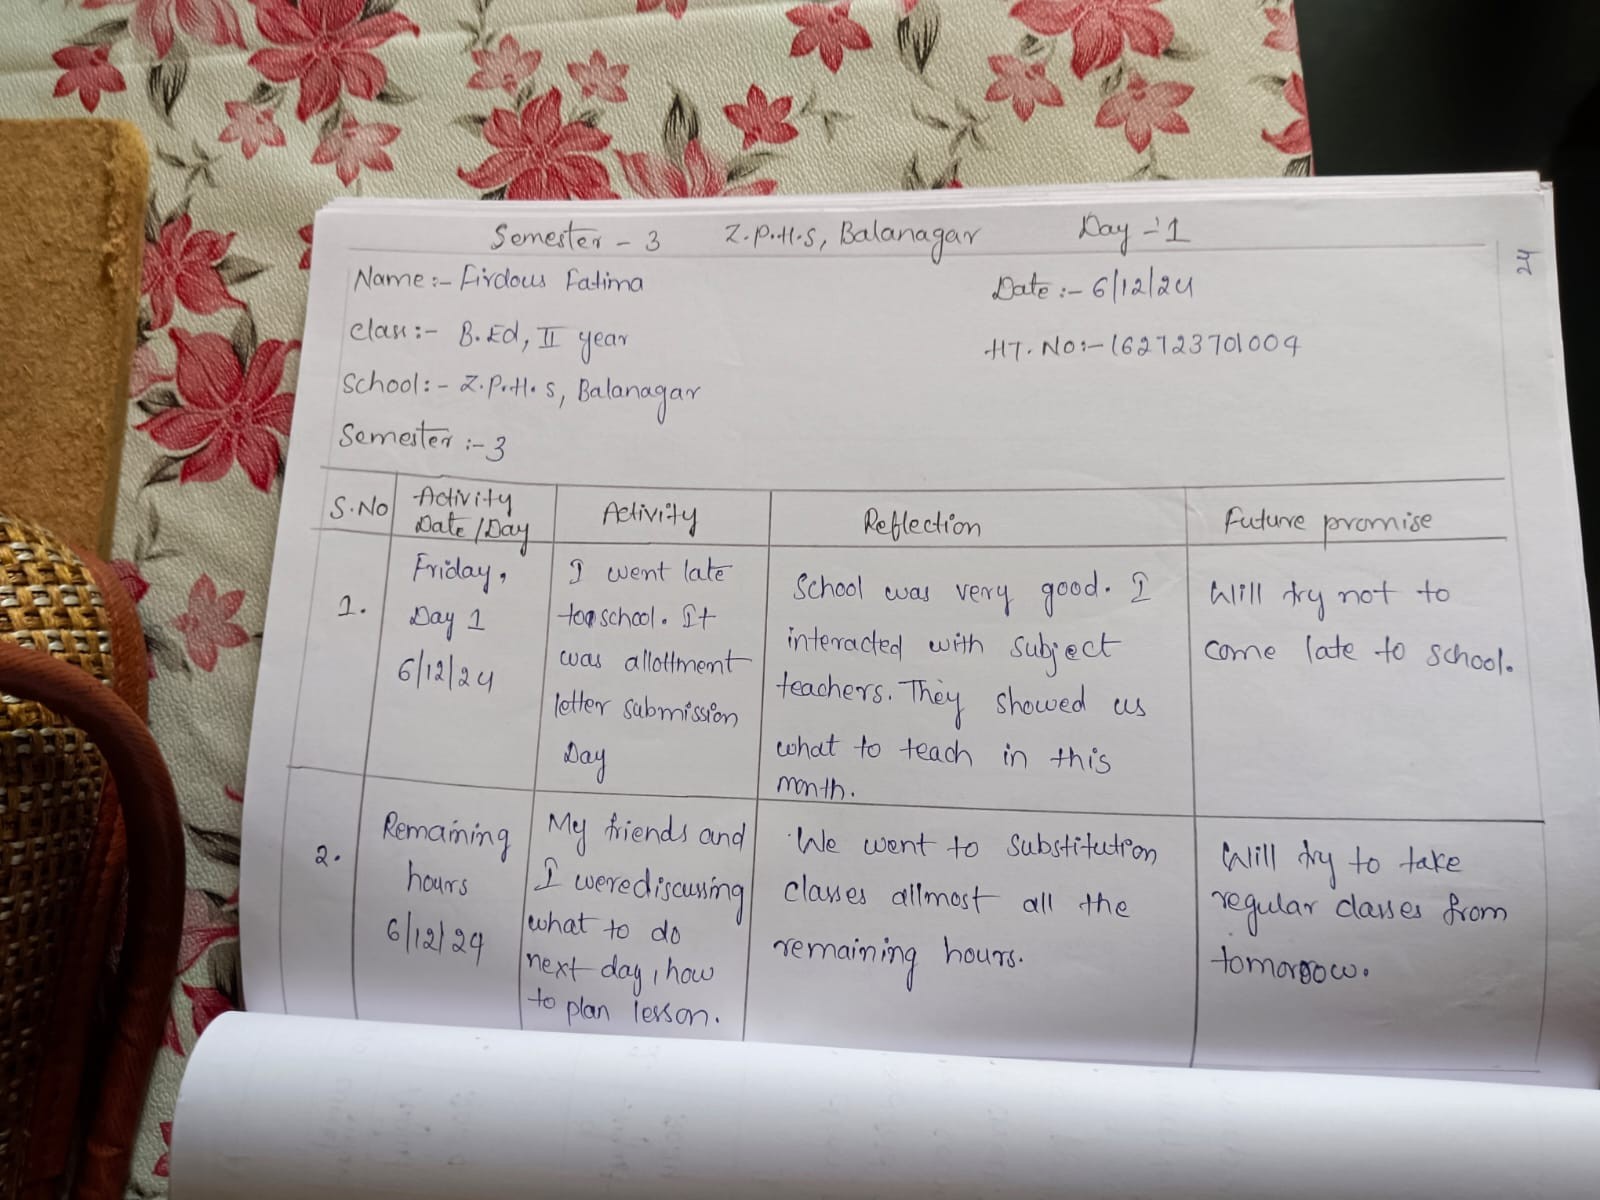 Semester - 3 Z.P.H.S, Balanagar Day - 1
24
Name :- Firdous Fatima Date :- 6/12/24
class :- B.Ed, II year HT. No :- 162723701004
School :- Z.P.H.S, Balanagar
Semester :- 3
S.No
Activity
Date/Day
Activity
Reflection
Future promise
1.
Friday,
Day 1
6/12/24
I went late
to school. It
was allottment
letter submission
Day
School was very good. I
interacted with subject
teachers. They showed us
what to teach in this
month.
Will try not to
come late to school.
2.
Remaining
hours
6/12/24
My friends and
I were discussing
what to do
next day, how
to plan lesson.
We went to substitution
classes allmost all the
remaining hours.
Will try to take
regular classes from
tomorrow.